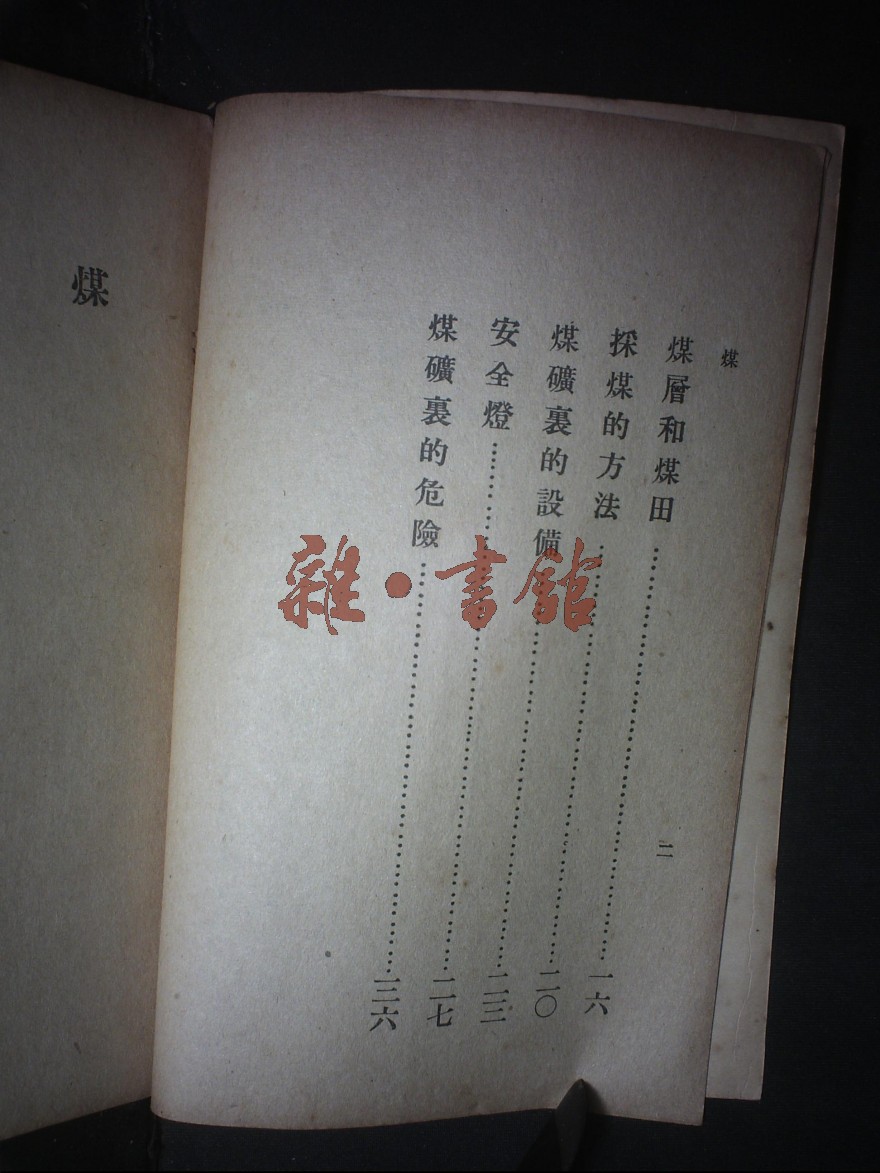 煤
二
煤層和煤田……一六
採煤的方法……二〇
煤礦裏的設備……二三
安全燈……二七
煤礦裏的危險……三六
煤
雜·書館